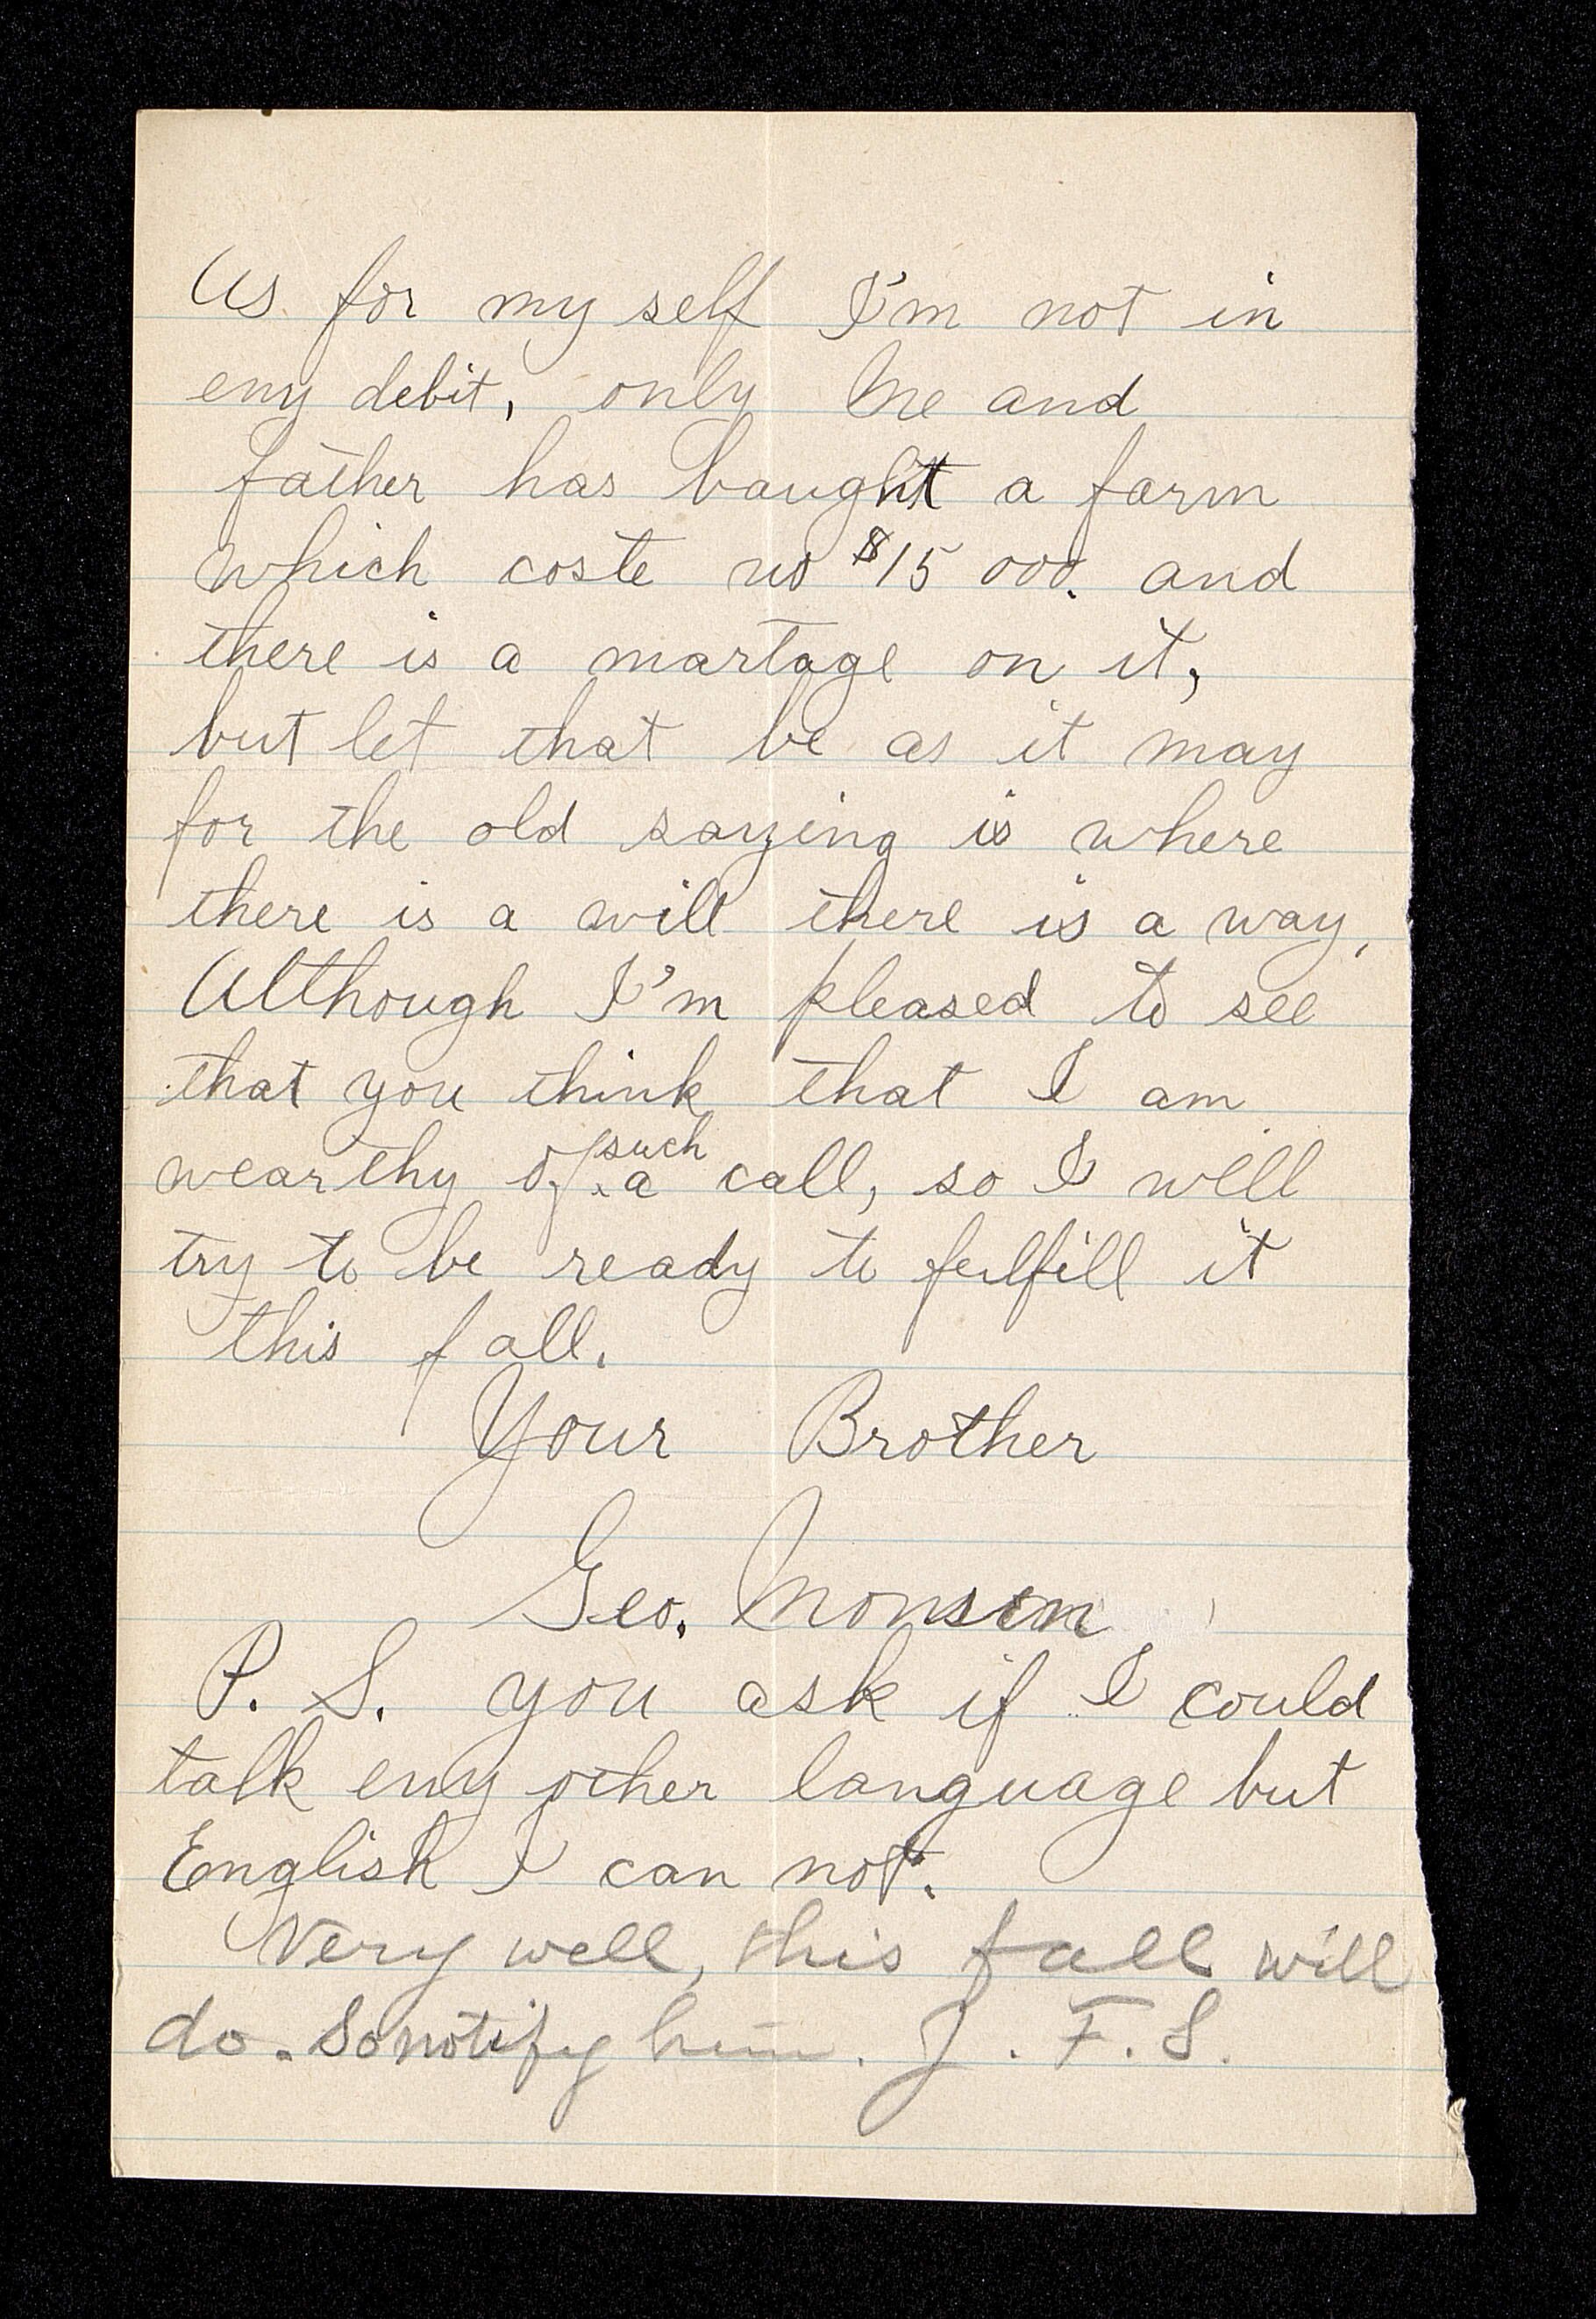 As for my self I'm not in
eny debit, only Me and
father has baught a farm
which coste us $15 000. and
there is a martage on it,
but let that be as it may
for the old sayzing is where
there is a will there is a way,
Although I'm pleased to see
that you think that I am
wearthy of such a call, so I will
try to be ready to fulfill it
this fall.
Your Brother
Geo. Monson
P. S. you ask if I could
talk eny other language but
English I can not.
Very well, this fall will
do. So notify him. J. F. S.